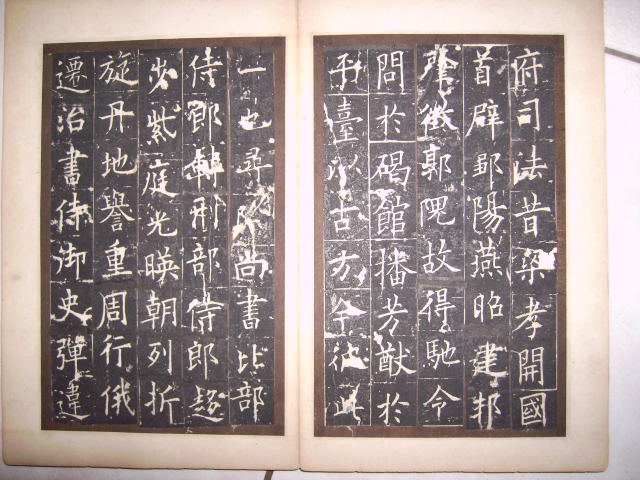 府司法昔梁孝開國
首辟鄒陽燕昭建邦
肇徵郭隗故得馳令
問於碣館播芳猷於
平臺以古方今彼此
一也尋除尚書比部
侍郎轉刑部侍郎趍
步紫庭光暎朝列折
旋丹地譽重周行俄
遷治書侍御史彈違